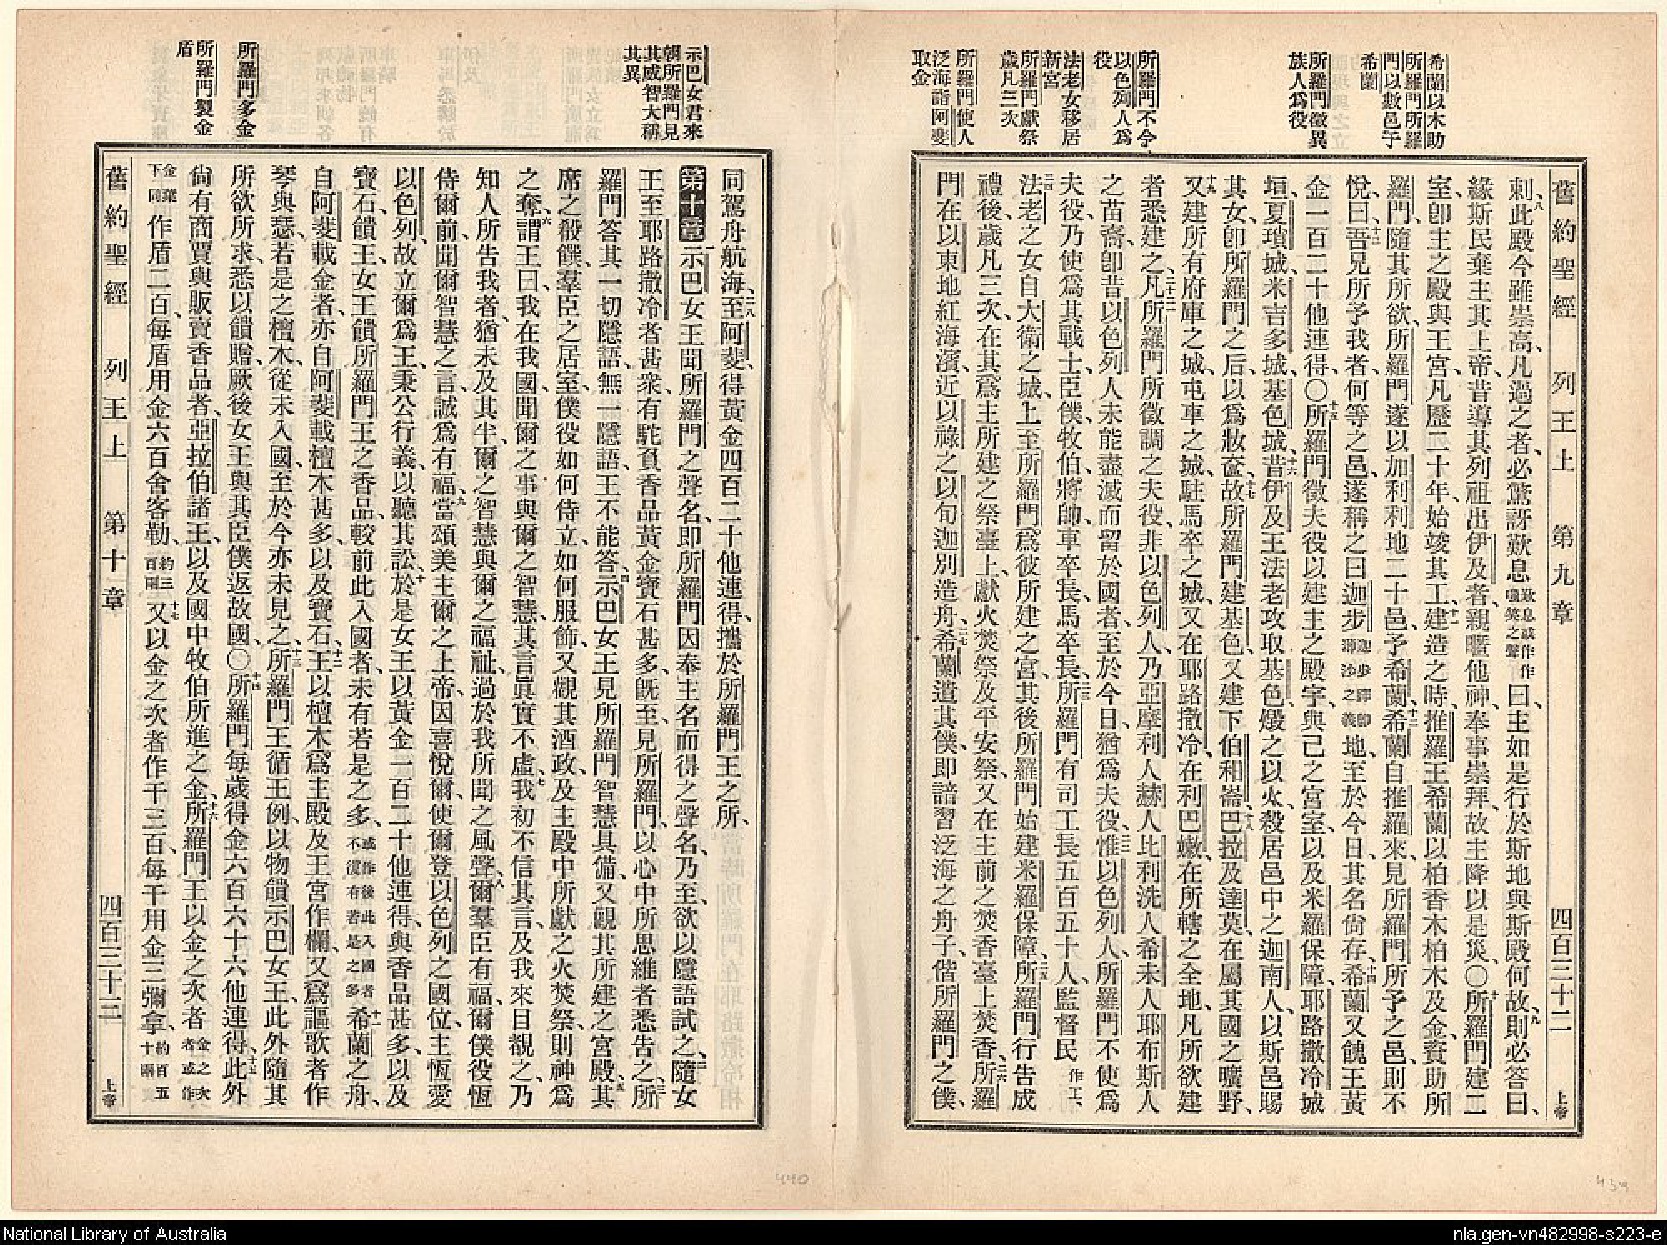 希蘭以木助
所羅門所羅
門以數邑予
希蘭
所羅門徵異
族人爲役
所羅門不令
以色列人爲
役
法老女移居
新宮
所羅門獻祭
歲凡三次
所羅門使人
泛海詣阿斐
取金
舊約聖經 列王上 第九章 四百三十二 上帝
刺此殿今雖崇高凡過之者必驚訝歎息歎息或作作嗤笑之聲曰主如是行於斯地與斯殿何故則必答曰
緣斯民棄主其上帝昔導其列祖出伊及者親暱他神奉事崇拜故主降以是災〇所羅門建二
室卽主之殿與王宮凡歷二十年始竣其工建造之時推羅王希蘭以柏香木柏木及金資助所
羅門隨其所欲所羅門遂以加利利地二十邑予希蘭希蘭自推羅來見所羅門所予之邑則不
悅曰吾兄所予我者何等之邑遂稱之曰迦步迦步譯卽瀰沙之義地至於今日其名尙存希蘭又餽王黃
金一百二十他連得〇所羅門徵夫役以建主之殿宇與己之宮室以及米羅保障耶路撒冷城
垣夏瑣城米吉多城基色城昔伊及王法老攻取基色燬之以火殺居邑中之迦南人以斯邑賜
其女卽所羅門之后以爲妝奩故所羅門建基色又建下伯和崙巴拉及達莫在屬其國之曠野
又建所有府庫之城屯車之城駐馬卒之城又在耶路撒冷在利巴嫩在所轄之全地凡所欲建
者悉建之凡所羅門所徵調之夫役非以色列人乃亞摩利人赫人比利洗人希未人耶布斯人
之苗裔卽昔以色列人未能盡滅而留於國者至於今日猶爲夫役惟以色列人所羅門不使爲
夫役乃使爲其戰士臣僕牧伯將帥車卒長馬卒長所羅門有司工長五百五十人監督民作工
法老之女自大衛之城上至所羅門爲彼所建之宮其後所羅門始建米羅保障所羅門行告成
禮後歲凡三次在其爲主所建之祭臺上獻火焚祭及平安祭又在主前之焚香臺上焚香所羅
門在以東地紅海濱近以祿之以旬迦別造舟希蘭遣其僕卽諳習泛海之舟子偕所羅門之僕
示巴女君來
朝所羅門見
其威智大稱
其異
所羅門多金
所羅門製金
盾
同駕舟航海至阿斐得黃金四百二十他連得攜於所羅門王之所
第十章示巴女王聞所羅門之聲名卽所羅門因奉主名而得之聲名乃至欲以隱語試之隨女
王至耶路撒冷者甚衆有駝負香品黃金寶石甚多旣至見所羅門以心中所思維者悉告之所
羅門答其一切隱語無一隱語王不能答示巴女王見所羅門智慧具備又觀其所建之宮殿其
席之殽饌羣臣之居室僕役如何侍立如何服飾又觀其酒政及主殿中所獻之火焚祭則神爲
之奪謂王曰我在我國聞爾之事與爾之智慧其言眞實不虛我初不信其言及我來目覩之乃
知人所告我者猶未及其半爾之智慧與爾之福祉過於我所聞之風聲爾羣臣有福爾僕役恆
侍爾前聞爾智慧之言誠爲有福當頌美主爾之上帝因喜悅爾使爾登以色列之國位主恆愛
以色列故立爾爲王秉公行義以聽其訟於是女王以黃金一百二十他連得與香品甚多以及
寶石饋王女王饋所羅門王之香品較前此入國者未有若是之多或作後此入國者不復有若是之多希蘭之舟
自阿斐載金者亦自阿斐載檀木甚多以及寶石王以檀木爲主殿及王宮作欄又爲謳歌者作
琴與瑟若是之檀木從未入國至於今亦未見之所羅門王循王例以物饋示巴女王此外隨其
所欲所求悉以饋贈厥後女王與其臣僕返故國〇所羅門每歲得金六百六十六他連得此外
尙有商賈與販賣香品者亞拉伯諸王以及國中牧伯所進之金所羅門王以金之次者金之次者或作
金鎔下同作盾二百每盾用金六百舍客勒約三百兩又以金之次者作干三百每干用金三彌拿約百五十兩
舊約聖經 列王上 第十章 四百三十三 上帝
440
439
National Library of Australia
nla.gen-vn482998-s223-e